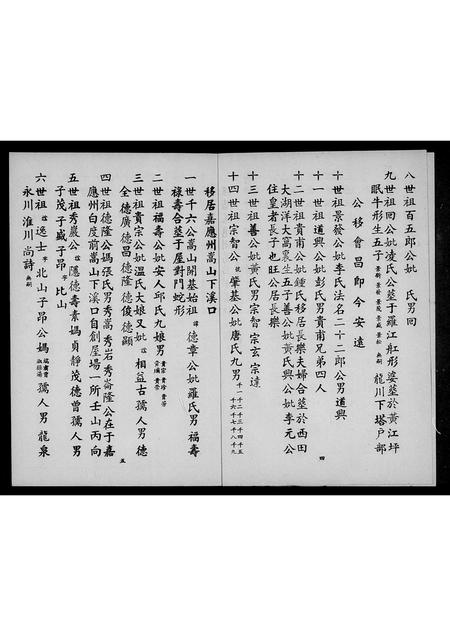 八世祖百五郎公妣　氏男回
九世祖回公妣凌氏公葬于羅江庄形婆葬於黃江坪
眠牛形生五子 龍川下塔戶部
公移會昌即今安遠
十世祖景發公妣李氏法名二十二郎公男道興
十一世祖道興公妣彭氏男貴甫兄弟四人
十二世祖貴甫公妣鍾氏移居長樂夫婦合葬於西田
大湖洋大窩裏生五子善公妣黃氏興公妣李元公
住皇者長子也旺公居長樂
十三世祖善公妣黃氏男宗智宗玄宗達
十四世祖宗智公號肇基公妣唐氏九男千一千二千三千四千五千六千七千八千九
四
移居嘉應州嵩山下溪口
一世千六公嵩山開基始祖諱德章公妣羅氏男福壽
祿壽合葬于屋對門蛇形
二世祖福壽公妣安人邱氏九娘男貴宗
三世祖貴宗公妣溫氏大娘又妣諱相益古孺人男德
全德廣德昌德隆德俊德顯
四世祖德隆公媽張氏男秀嵩秀岩秀崙隆公在于嘉
應州白度前嵩山下溪口自創屋場一所壬山丙向
五世祖秀巖公諡隱德壽素媽貞靜茂德曾孺人男
子茂子威子昂字比山
六世祖諡逸士字北山子昂公媽孺人男龍泉
永川淮川尚詩無嗣
五